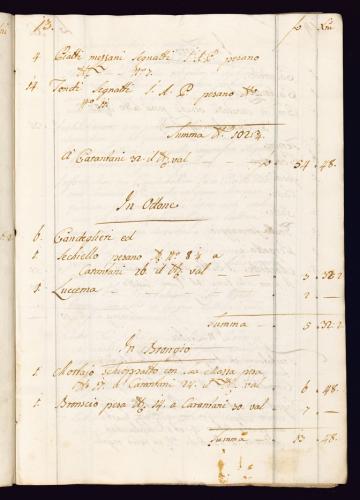 13. f Xni
4 Piatti mezzani Segnatti S. A. P. pesano
14. Tondi Segnatti S. A. P. pesano
Summa 102:3.
A' Carantani 32. il val f 54 .48.
In Odone
6. Candeglieri ed
1. Sechiello pesano No 8:4 a
Carantani 26. il val 3 .32:2
1. Lucerna 2 —
Summa 5 .32:2
In Brongio
1. Mortajo schioppatto con sua Massa pesa
17. a' Carantani 24. il val 6 .48.
1. Bronscio pesa 14. a Carantani 30. val 7 —
Summa 13 .48.